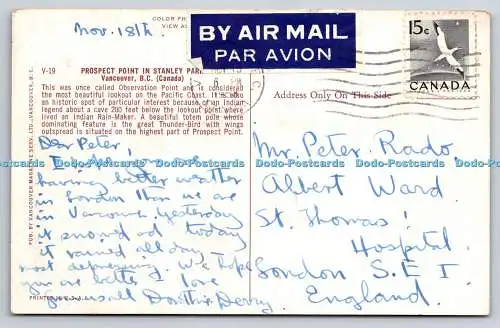 Nov. 18th.
COLOR
BY AIR MAIL
PAR AVION
15c
CANADA
V-19
PROSPECT POINT IN STANLEY PARK
Vancouver, B.C. (Canada)
This was once called Observation Point and is considered
the most beautiful lookout on the Pacific Coast. It is also
an historic spot of particular interest because of an Indian
legend about a cave 200 feet below the lookout point where
lived an Indian Rain-Maker. A beautiful totem pole whose
dominating feature is the great Thunder-Bird with wings
outspread is situated on the highest part of Prospect Point.
Address Only On This Side
Dear Peter,
I hope
having better weather
in London than we are
in Vancouver. Yesterday
it snowed & today
it rained all day –
most depressing. We hope
you are better & love
from us all Dorothie & Denny.
Mr. Peter Rado
Albert Ward
St. Thomas'
Hospital
London S.E 1
England.
PUB. BY VANCOUVER MAGAZINE SERV. LTD.—VANCOUVER, B.C.
PRINTED IN U.S.A.
Dodo-Postcards Dodo-Postcards Dodo-Postcards Dodo-Postcards